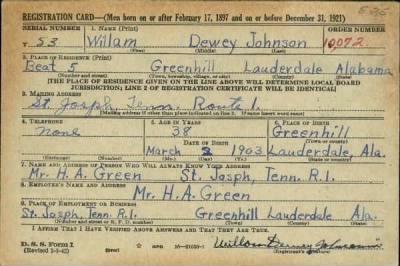 REGISTRATION CARD—(Men born on or after February 17, 1897 and on or before December 31, 1921)
SERIAL NUMBER 1. NAME (Print) ORDER NUMBER
T 53 Willam Dewey Johnson 10,072
(First) (Middle) (Last)
2. PLACE OF RESIDENCE (Print)
Beat 5 Greenhill Lauderdale Alabama
(Number and street) (Town, township, village, or city) (County) (State)
[THE PLACE OF RESIDENCE GIVEN ON THE LINE ABOVE WILL DETERMINE LOCAL BOARD
JURISDICTION; LINE 2 OF REGISTRATION CERTIFICATE WILL BE IDENTICAL]
3. MAILING ADDRESS
St. Josph, Tenn. Route 1.
[Mailing address if other than place indicated on line 2. If same insert word same]
4. TELEPHONE 5. AGE IN YEARS 6. PLACE OF BIRTH
None 38 Greenhill
DATE OF BIRTH (Town or county)
March 2 1903 Lauderdale, Ala.
(Exchange) (Number) (Mo.) (Day) (Yr.) (State or country)
7. NAME AND ADDRESS OF PERSON WHO WILL ALWAYS KNOW YOUR ADDRESS
Mr. H. A. Green St. Josph, Tenn. R.1.
8. EMPLOYER'S NAME AND ADDRESS
Mr. H. A. Green
9. PLACE OF EMPLOYMENT OR BUSINESS
St. Josph, Tenn. R.1. Greenhill Lauderdale Ala.
(Number and street or R. F. D. number) (Town) (County) (State)
I AFFIRM THAT I HAVE VERIFIED ABOVE ANSWERS AND THAT THEY ARE TRUE.
D. S. S. Form 1
(Revised) (over)